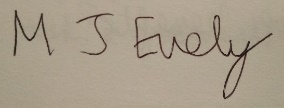 M J Evely